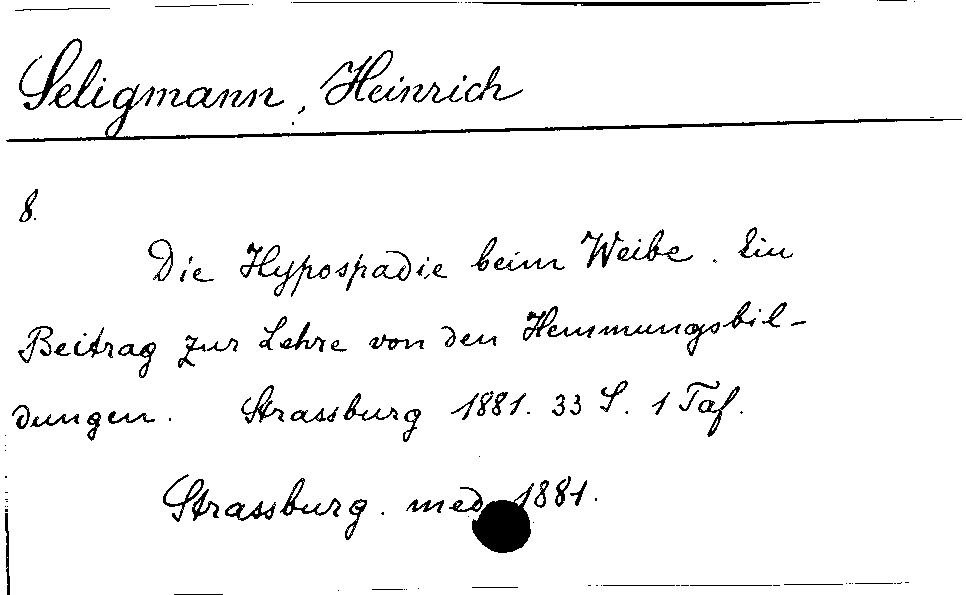 Seligmann, Heinrich
8.
Die Hypospadie beim Weibe. Ein
Beitrag zur Lehre von den Hemmungsbil-
dungen. Strassburg 1881. 33 S. 1 Taf.
Strassburg. med 1881.